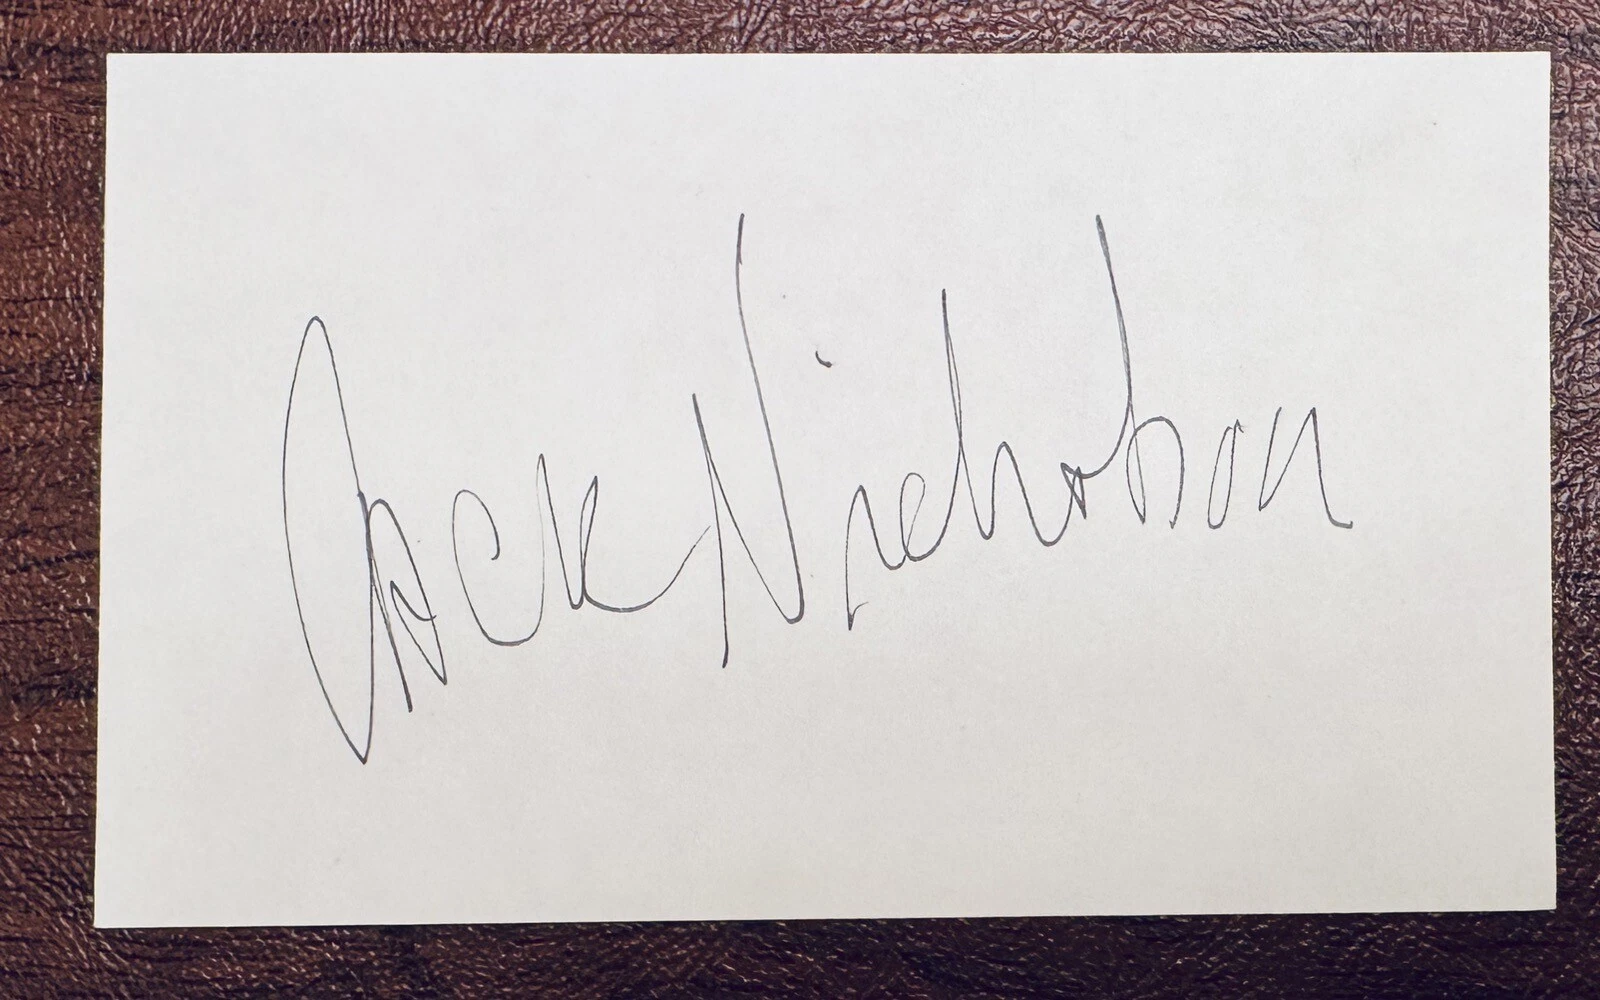 Jack Nicholson